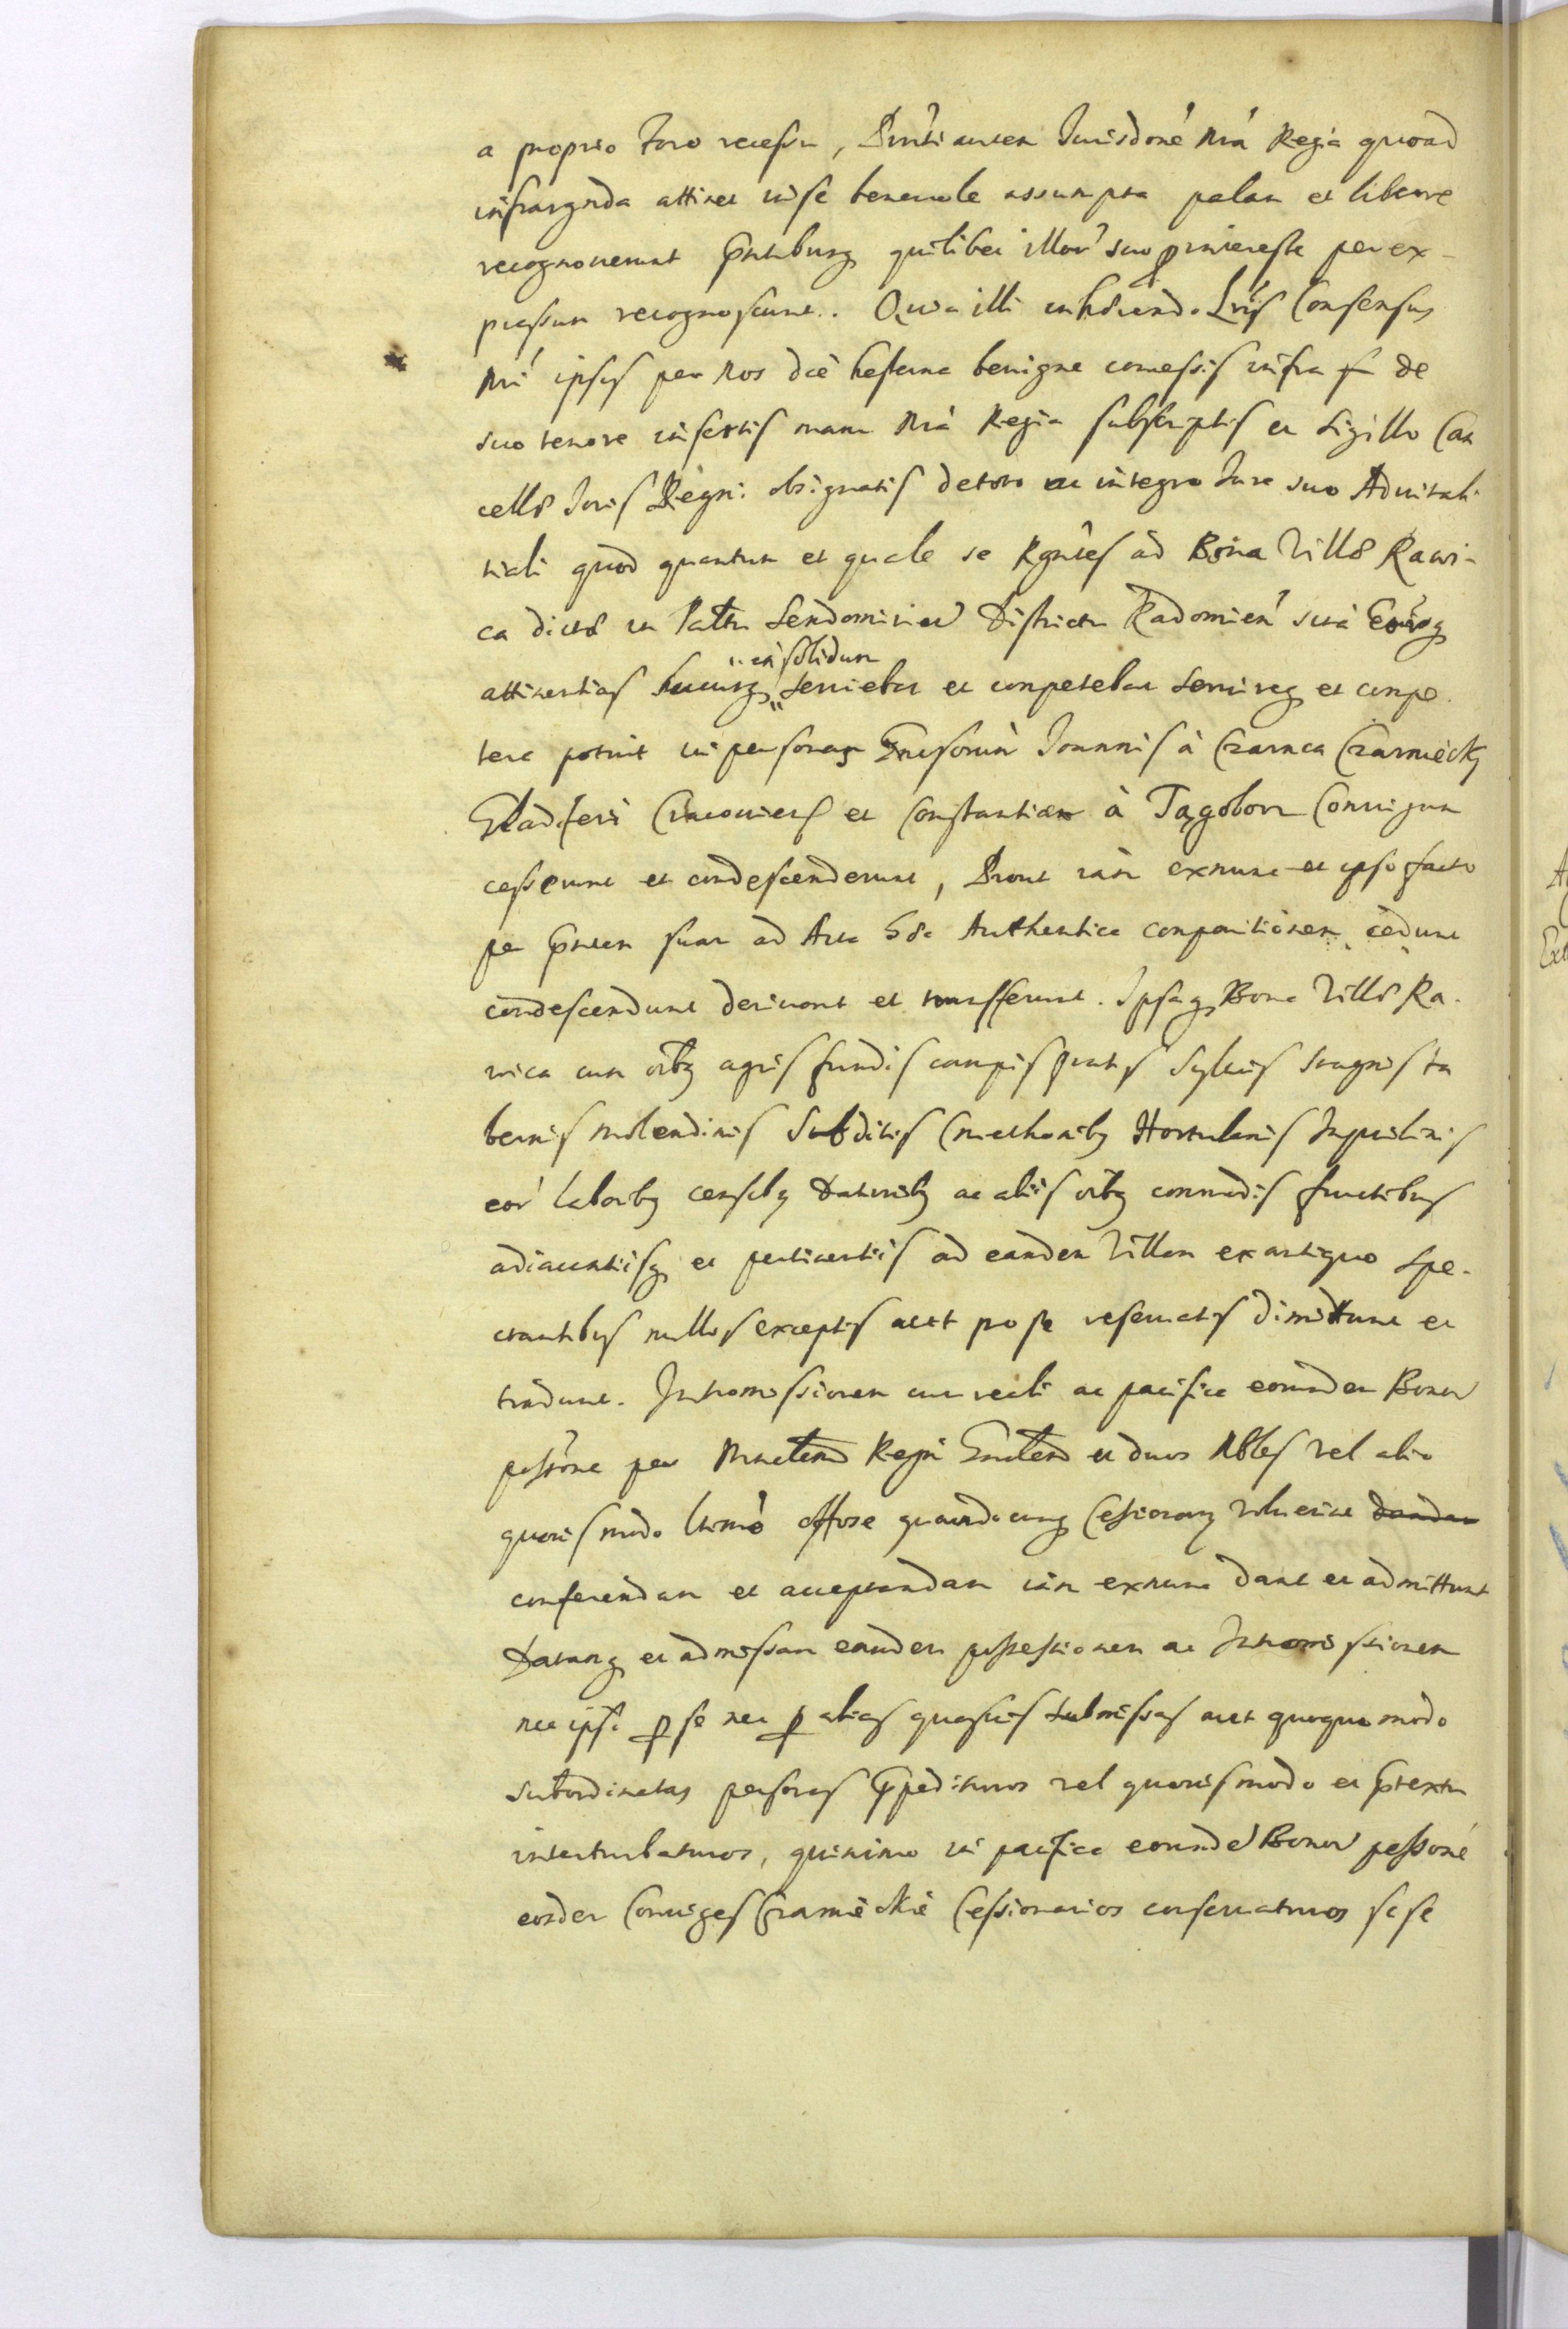 a proprio Foro recessu, Pnti autem Jurisdoné Nrá Regia quoad
infrascripta attinet in se benevole assumpta palam et libere
recognouerunt Pntibusq quilibet illor suo p interesse per ex-
pressum recognoscunt. Quia illi inhærendo Lris Consensus
Nri ipsis per Nos die hesterna benigne concessis infra de
suo tenore insertis manu Nrá Regia subscriptis et sigillo Can
cellæ Regni obsignatis de toto ac integro Jure suo Aduitali
tiali quod quantum et quale se Rgntes ad Bona Villæ Rawi-
ca dictæ in Pattu Sendomirien Districtu Radomien sita Eorq
attinentias "in solidum
seruiebat et competebat seruireq et compe
tere potuit in personas Gnrosorum Joannis à Czarnca Czarniecky
Gladiferi Cracouien et Constantiæ à Tągoborz Coniugum
cesserunt et condescenderunt, Prout iam exnunc et ipso facto
per Pntem suam ad Acta Authentice comparitionem cedunt
condescendunt deriuant et transferunt. Ipsaq Bona Villæ Ra-
wica cum oibq agris fundis campis pratis syluis stagnis ta
bernis molendinis subditis Cmethonibq Hortulanis Inquilinis
eor laboribq censibq daturibq ac aliis oibq commodis fructibus
adiacentiisq et pertinentiis ad eandem Villam ex antiquo spe-
ctantibus nullis exceptis aut pro se reseruatis dimittunt et
tradunt. Intromissionem cum reali ac pacifica eorundem Bonor
possone per Mnrlem Regni Gnralem et duos Nbles vel alio
quouis modo ltimo Offose quandocunq Cessionarij voluerint
conferendam et acceptandam iam exnunc dant et admittunt
Datamq et admissam eandem possessionem ac Intromissionem
nec ipsi p se nec p alias quasuis submissas aut quoquo modo
subordinatas personas Ppedituros vel quouis modo et Ptextu
interturbaturos, quinimo in pacifica eorundé Bonor possoné
eosdem Coniuges Czarnieckie Cessionarios conseruaturos se se